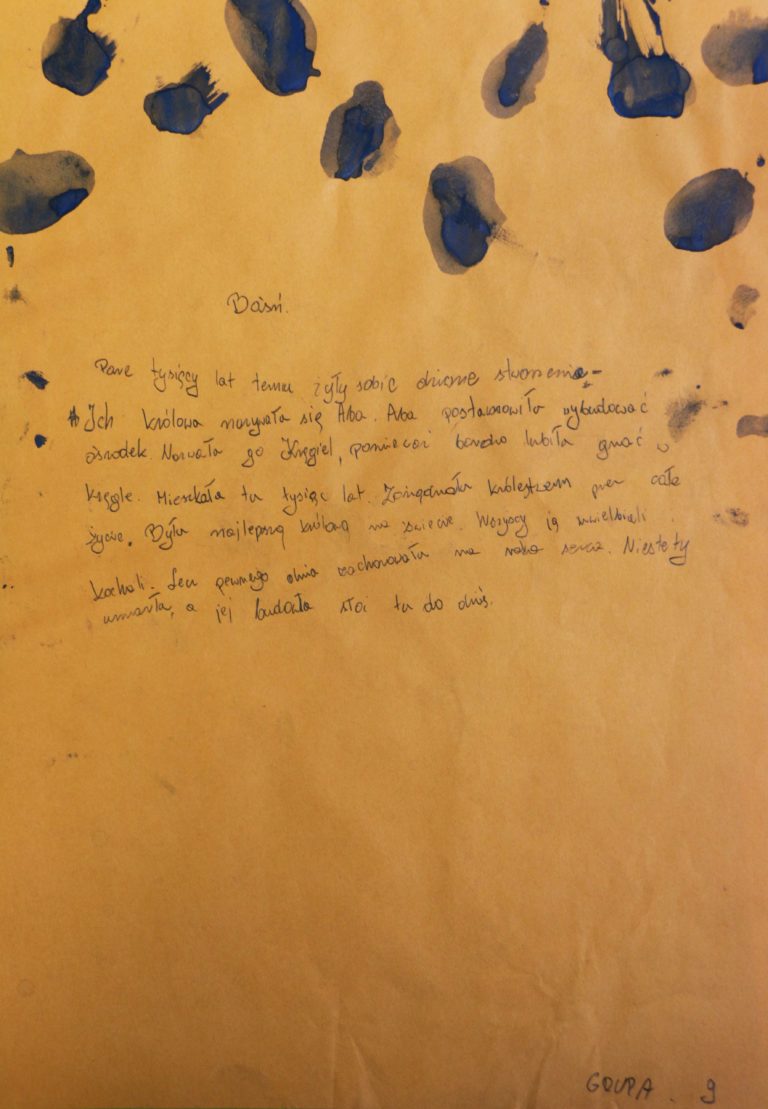 Baśń.
Parę tysięcy lat temu żyły sobie dziwne stworzenia.
Ich królowa nazywała się Aba. Aba postanowiła wybudować
ośrodek. Nazwała go Kręgiel, ponieważ bardzo lubiła grać w
kręgle. Mieszkała tu tysiąc lat. Zarządzała królestwem przez całe
życie. Była najlepszą królową na świecie. Wszyscy ją uwielbiali i
kochali. Lecz pewnego dnia zachorowała na raka serca. Niestety
umarła, a jej budowla stoi tu do dziś.
GRUPA. 9